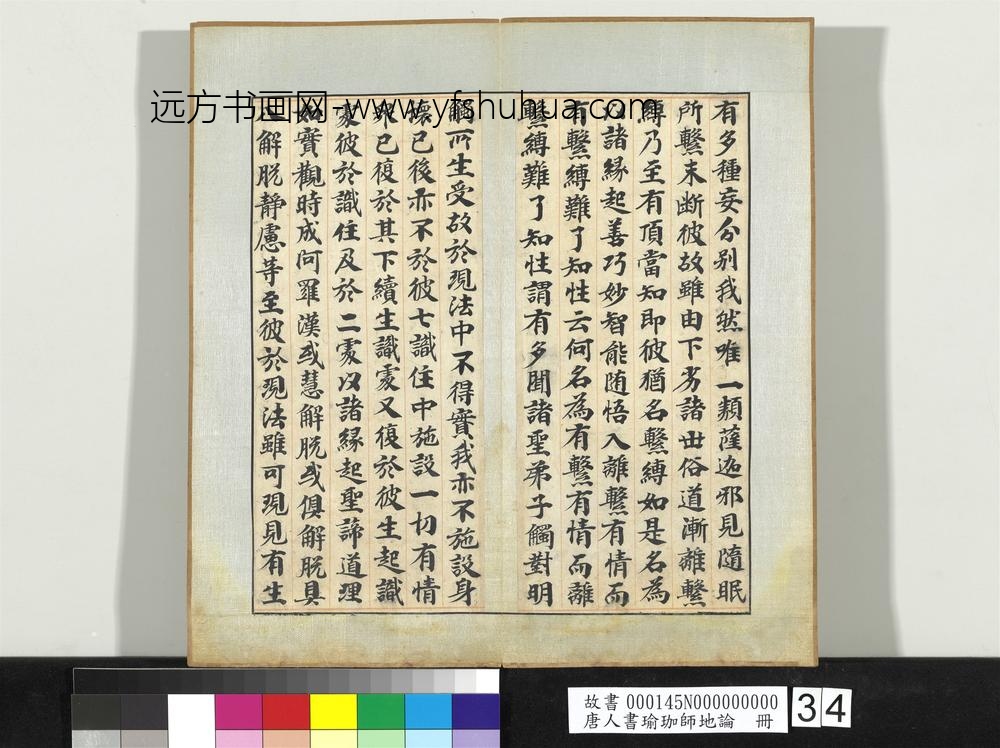 远方书画网-www.yfshuhua.com
有多種妄分別我然唯一類薩迦邪見隨眠
所繫未断彼故雖由下劣諸世俗道漸離繫
縛乃至有頂當知即彼猶名繫縛如是名為
以諸緣起善巧妙智能随悟入離繫有情而
有繫縛難了知性云何名為有繫有情而離
繫縛難了知性謂有多聞諸聖弟子觸對明
觸所生受故於現法中不得實我亦不施設身
壞已後亦不於彼七識住中施設一切有情
死已復於其下續生識處又復於彼生起識
處彼於識住及於二處以諸緣起聖諦道理
如實觀時成阿羅漢或慧解脱或俱解脱具
八解脱靜慮等至彼於現法雖可現見有生
故書 000145N000000000
唐人書瑜珈師地論 冊
34